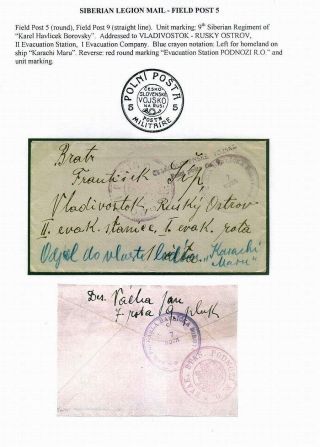 SIBERIAN LEGION MAIL - FIELD POST 5
Field Post 5 (round), Field Post 9 (straight line). Unit marking: 9th Siberian Regiment of
"Karel Havlicek Borovsky". Addressed to VLADIVOSTOK - RUSKY OSTROV,
II Evacuation Station, I Evacuation Company. Blue crayon notation: Left for homeland on
ship "Karachi Maru". Reverse: red round marking "Evacuation Station PODNOZI R.O." and
unit marking.
POLNÍ POŠTA
5 ČESKO- 5
SLOVENSKÉ
VOJSKO
NA RUSI
POSTE
MILITAIRE
Bratr
František
Vladivostok Ruský Ostrov
II. evak. stanice, I. evak. rota
Odjel do vlasti lodí "Karachi
Maru"
Des. Vácha Jan
7 rota 9 pluk
7
ROTA
PODNOZI R.O.